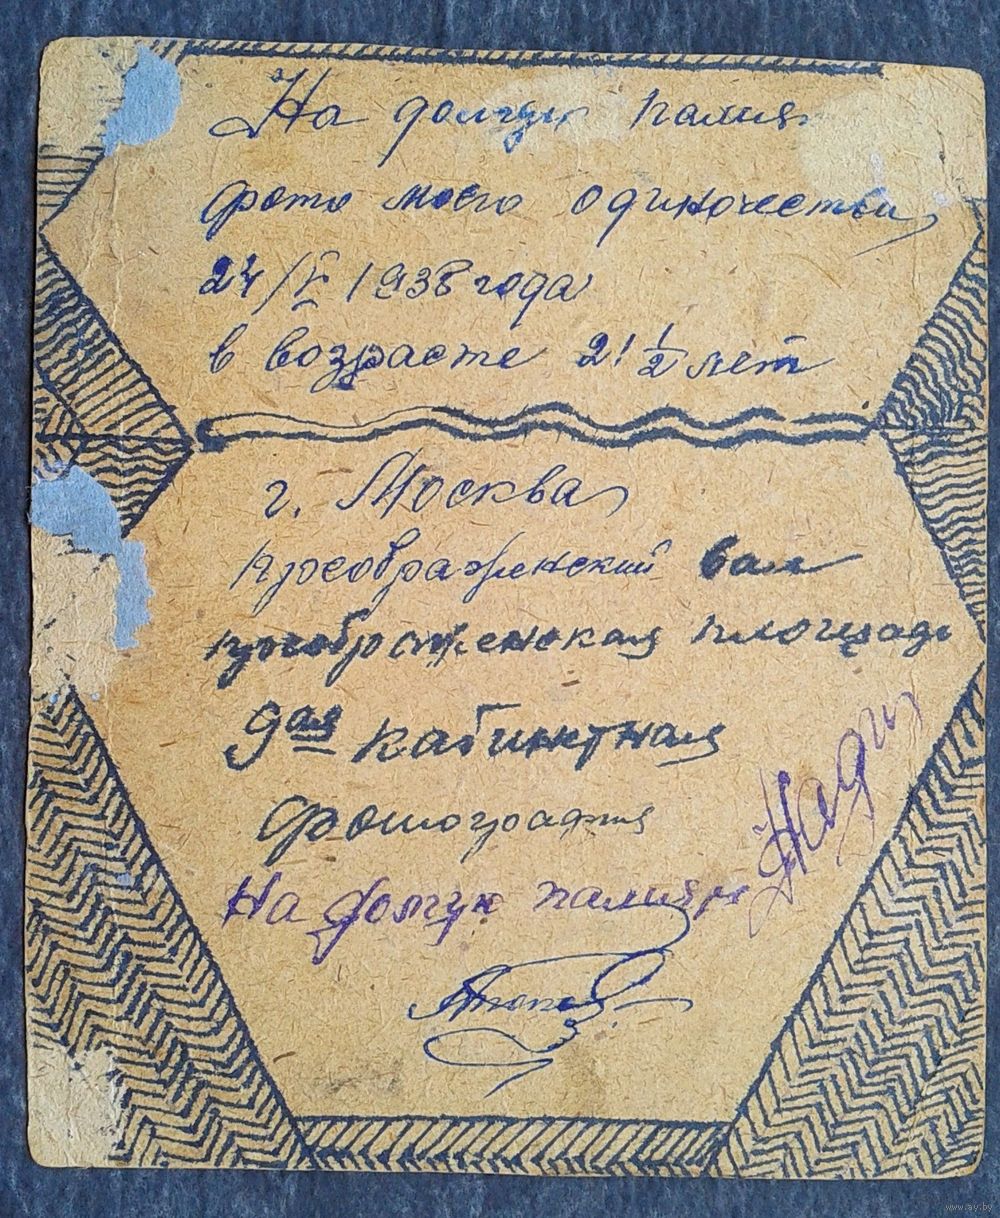 На долгую память
фото моего одиночества
24/V 1938 года
в возрасте 21 1/2 лет
г. Москва
преображенский вал
преображенская площадь
9ая кабинетная
фотография
На долгую память
Нади
www.ay.by